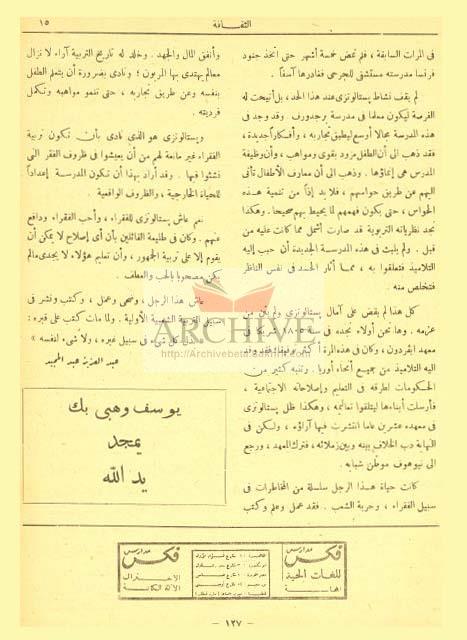 الثقافة
١٥
فى المرات السابقة ، فلم تمض خمسة أشهر حتى اتخذ جنود
فرنسا مدرسته مستشفى للجرحى فغادرها آسفاً .
لم يقف نشاط بستالوتزى عند هذا الحد ، بل أتيحت له
الفرصة ليكون معلما فى مدرسة رجدورف . وقد وجد فى
هذه المدرسة مجالا أوسع ليطبق تجاربه ، وأفكاراً جديدة ،
فقد ذهب الى أن الطفل مزود بقوى ومواهب ، وأن وظيفة
المدرس هى إنماؤها . وذهب الى أن معارف الأطفال تأتى
اليهم عن طريق حواسهم ، فلا بد إذاً من تنمية هذه
الحواس ، حتى يكون فهمهم لما يحيط بهم صحيحا . وهكذا
نجد نظرياته التربوية قد صارت أشمل مما كانت عليه من
قبل . ولم يلبث فى هذه المدرسة الجديدة أن حبب إليه
التلاميذ فتعلقوا به ، مما أثار الحسد فى نفس الناظر
فتخلص منه .
كل هذا لم يقض على آمال بستالوتزى ولم يثن من
عزمه . وها نحن أولاء نجده فى سنة ١٨٠٥ شريكا فى
معهد ايفردون ، وكان فى هذه المرة أكثر توفيقا فقد وفد
اليه التلاميذ من جميع أنحاء أوربا . وتنبه كثير من
الحكومات لطرقه فى التعليم وإصلاحاته الاجتماعية ،
فأرسلت أبناءها ليتلقوا تعاليمه ، وهكذا ظل بستالوتزى
فى معهده عشرين عاما انتشرت فيها آراؤه ، ولكن فى
النهاية دب الخلاف بينه وبين زملائه ، فترك المعهد ، ورجع
الى نيوهوف موطن شبابه .
كانت حياة هذا الرجل سلسلة من المخاطرات فى
سبيل الفقراء ، وحرية الشعب . فقد عمل وعلم وكتب
وأنفق المال والجهد . وخلد له تاريخ التربية آراء لا تزال
معالم يهتدى بها المربون ؛ ونادى بضرورة أن يتعلم الطفل
بنفسه وعن طريق تجاربه ، حتى تنمو مواهبه وتكمل
فرديته .
وبستالوتزى هو الذى نادى بأن تكون تربية
الفقراء غير مانعة لهم من أن يعيشوا فى ظروف الفقر التى
نشئوا فيها . وقد أراد بهذا أن تكون المدرسة إعداداً
للحياة الخارجية ، والظروف الواقعية .
نعم عاش بستالوتزى للفقراء ، وأحب الفقراء ودافع
عنهم . وكان فى طليعة القائلين بأن أى إصلاح لا يمكن أن
يقوم إلا على تربية الجمهور ، وأن تعليم هؤلاء لا يجدى مالم
يكن مصحوبا بالحب والعطف .
عاش هذا الرجل ، وضحى وعمل ، وكتب ونشر فى
سبيل التربية الشعبية الأولية . ولما مات كتب على قبره :
كل شىء فى سبيل غيره ، ولا شىء لنفسه »
عبد العزيز عبد المجيد
ARCHIVE
يوسف وهبى بك
يمجد
يد الله
مدارس
فكس
للغات الحية
مدارس
فكس
الاختزال
الآلة الكاتبة
— ١٢٧ —